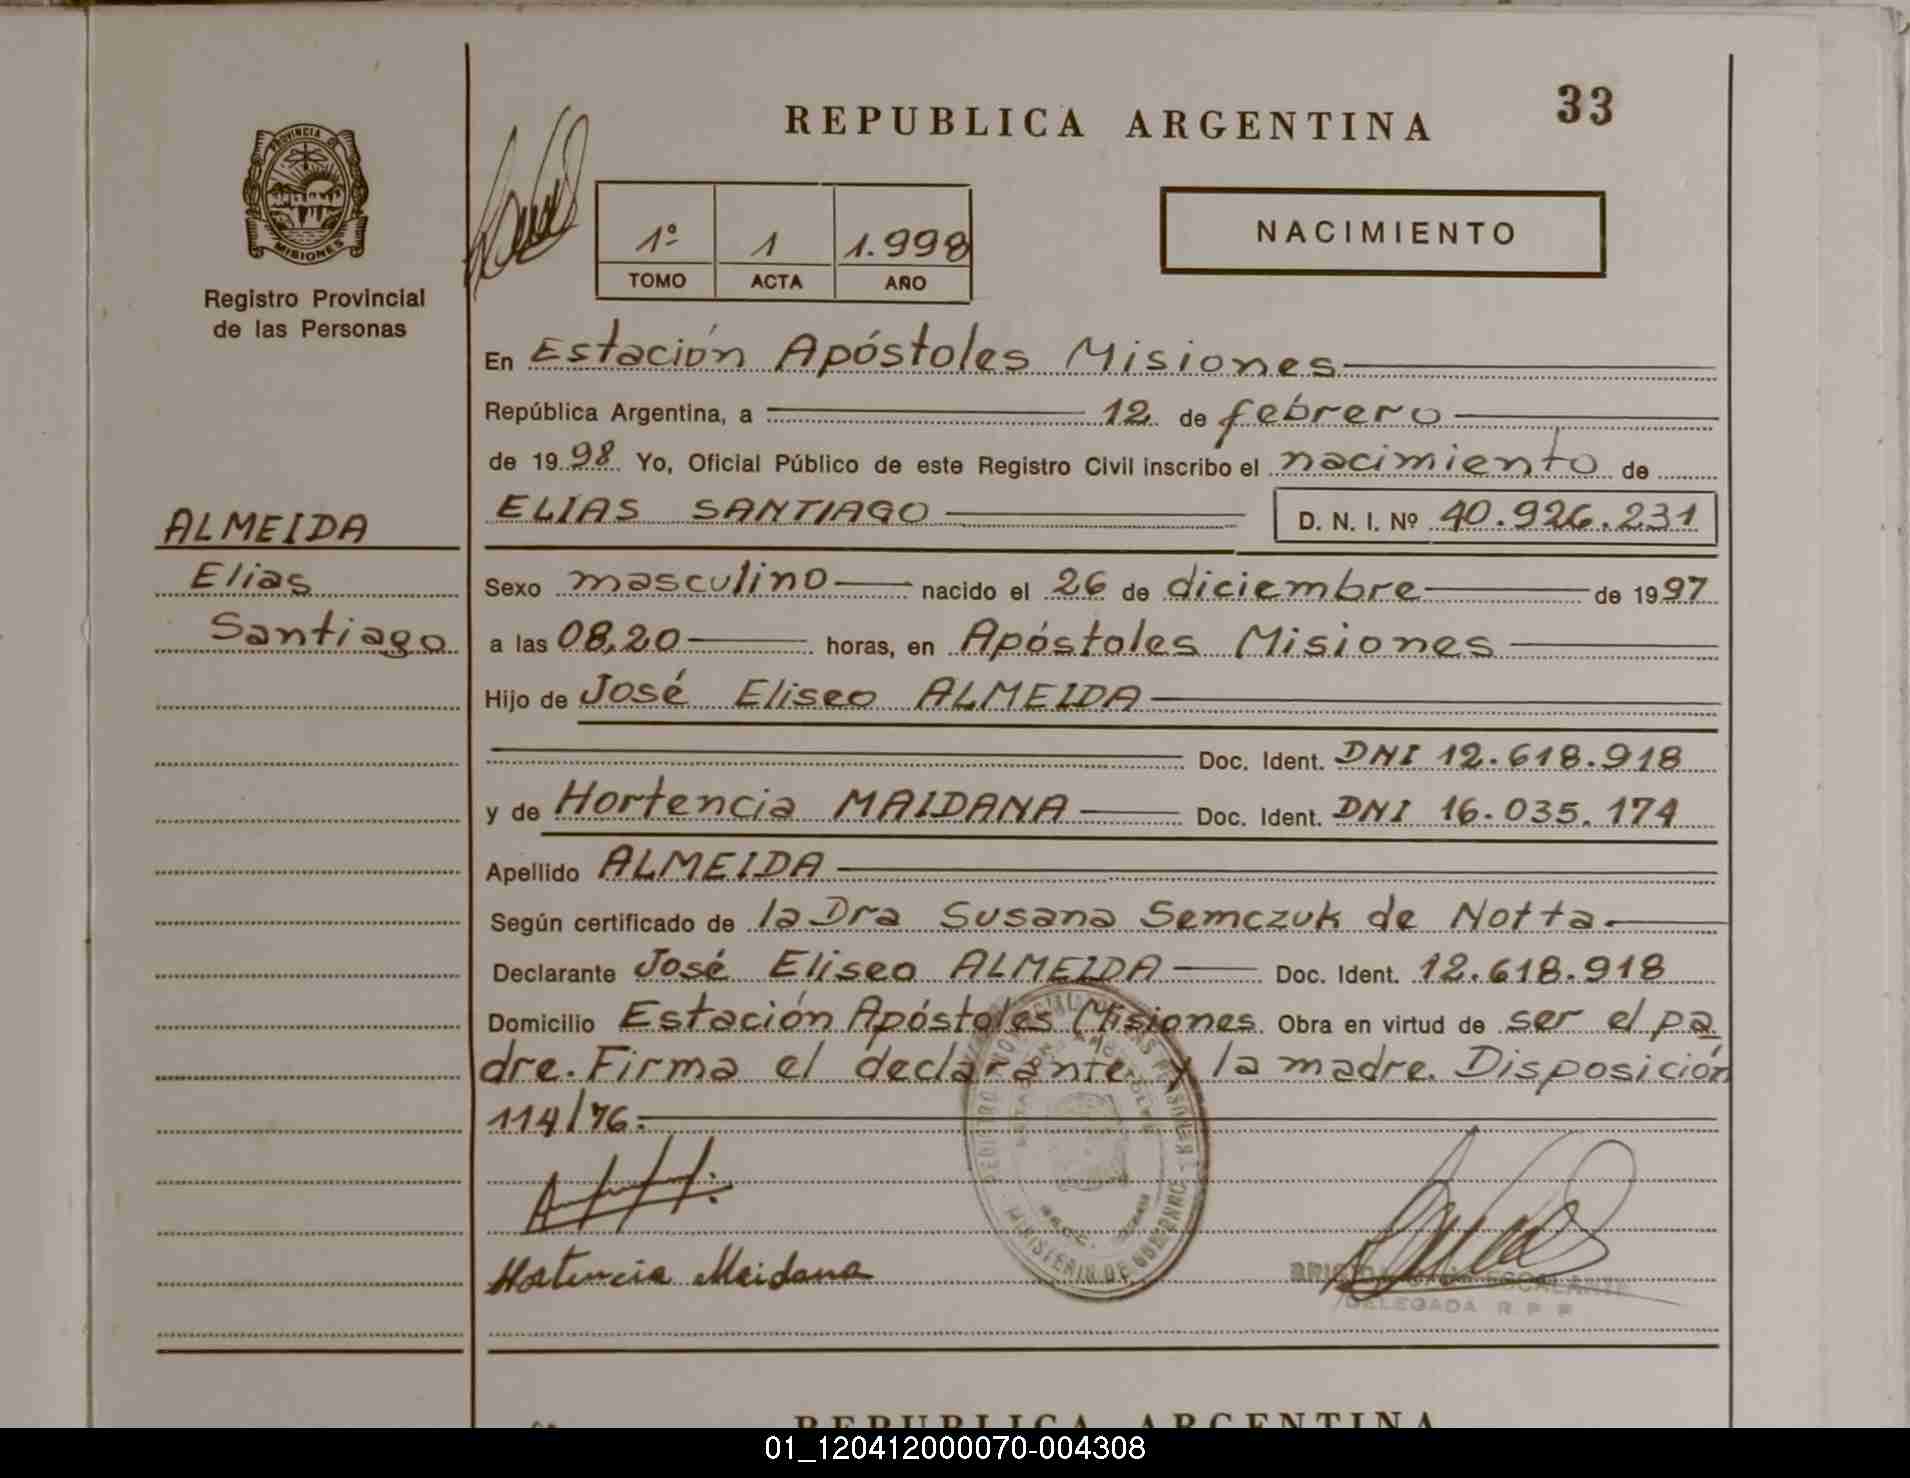 REPUBLICA ARGENTINA
33
PROVINCIA DE
MISIONES
Registro Provincial
de las Personas
1º 1 1.998
TOMO ACTA AÑO
NACIMIENTO
En Estación Apóstoles Misiones
República Argentina, a 12 de febrero
de 1998 Yo, Oficial Público de este Registro Civil inscribo el nacimiento de
ELIAS SANTIAGO D. N. I. Nº 40.926.231
ALMEIDA
Elias
Santiago
Sexo masculino nacido el 26 de diciembre de 1997
a las 08,20 horas, en Apóstoles Misiones
Hijo de José Eliseo ALMEIDA
Doc. Ident. DNI 12.618.918
y de Hortencia MAIDANA Doc. Ident. DNI 16.035.174
Apellido ALMEIDA
Según certificado de la Dra Susana Semczuk de Notta.
Declarante José Eliseo ALMEIDA Doc. Ident. 12.618.918
Domicilio Estación Apóstoles Misiones. Obra en virtud de ser el pa
dre. Firma el declarante y la madre. Disposición
114/76.
Hortencia Maidana
MINISTERIO DE GOBIERNO
ESCALANTE
DELEGADA R P P
REPUBLICA ARGENTINA
01_120412000070-004308